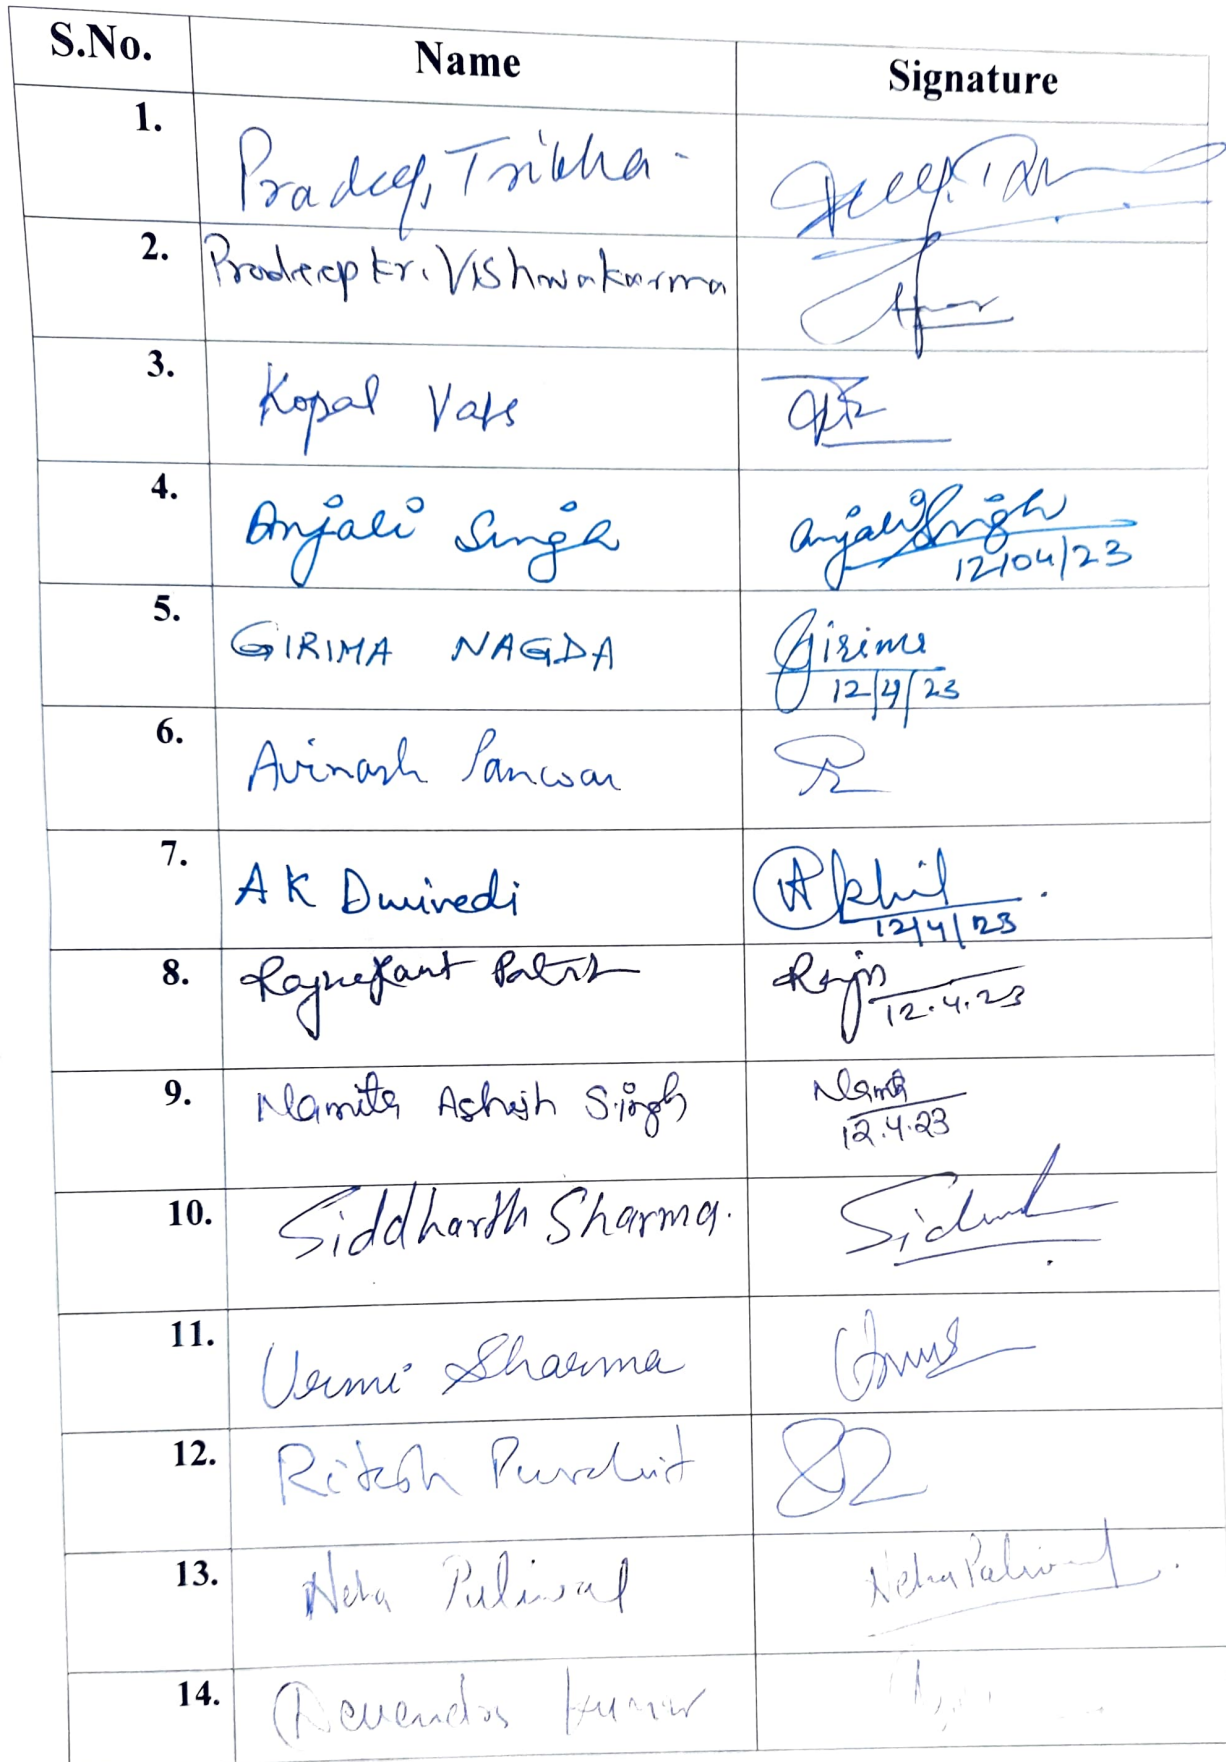 S.No. Name Signature
1. Pradeep Tribha
2. Pradeep Kr. Vishwakarma
3. Kopal Vats
4. Anjali Singh Anjali Singh
12/04/23
5. GIRIMA NAGDA Girima
12/4/23
6. Avinash Panwar
7. A K Dwivedi Akhil
12/4/23
8. Rajnikant Patel Rajni
12.4.23
9. Namita Ashish Singh Namita
12.4.23
10. Siddharth Sharma. Sid
11. Urmi Sharma
12. Ritesh Purohit
13. Neha Paliwal Neha Paliwal
14. Devendra Kumar